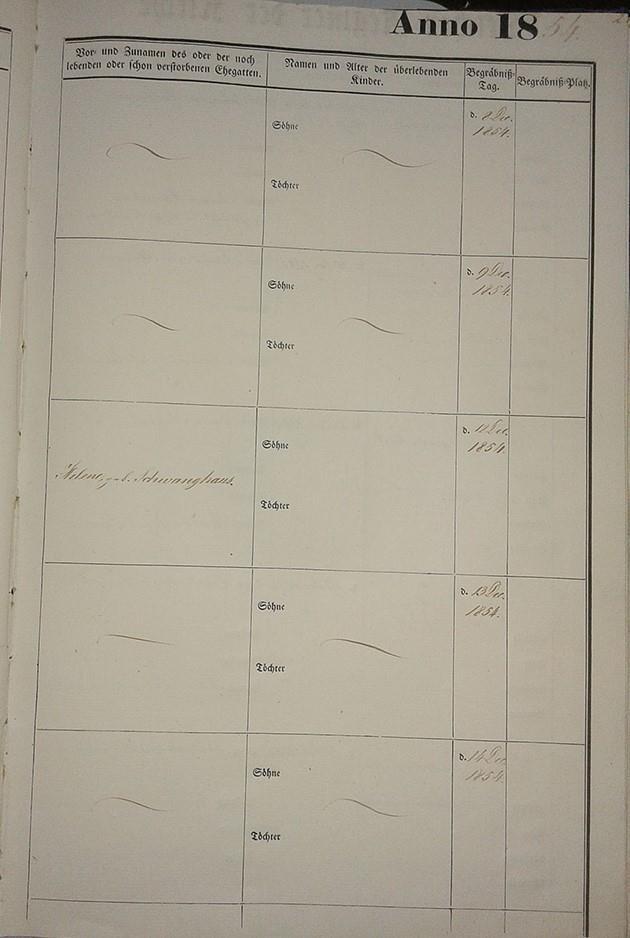 Anno 1854
Vor- und Zunamen des oder der noch
lebenden oder schon verstorbenen Ehegatten.
Namen und Alter der überlebenden
Kinder.
Begräbniß-
Tag.
Begräbniß-Platz.
Söhne
Töchter
d. 8 Dec.
1854.
Söhne
Töchter
d. 9 Dec.
1854.
Helene, geb. Schwanghaus.
Söhne
Töchter
d. Dec.
1854.
Söhne
Töchter
d. 13 Dec.
1854.
Söhne
Töchter
d. 14 Dec.
1854.